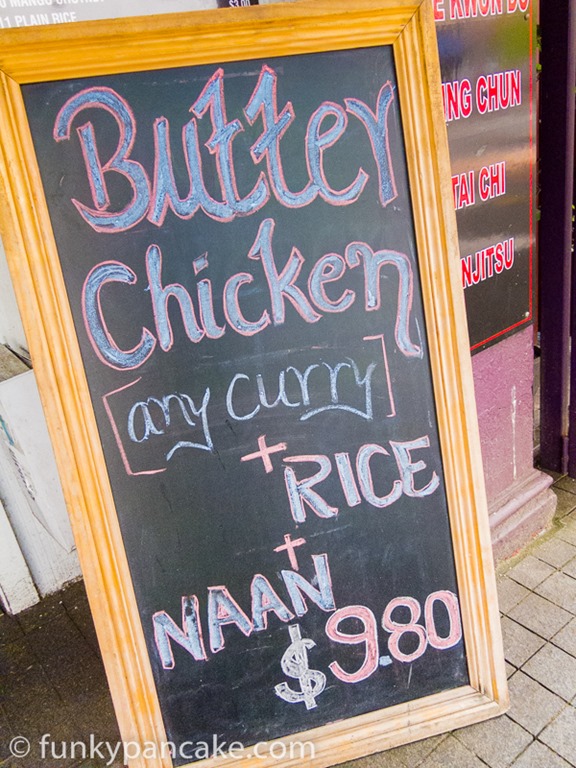 11 PLAIN RICE
$3.00
Butter
Chicken
[any curry]
+
RICE
+
NAAN
$9.80
KWON DO
NG CHUN
TAI CHI
NJITSU
© funkypancake.com